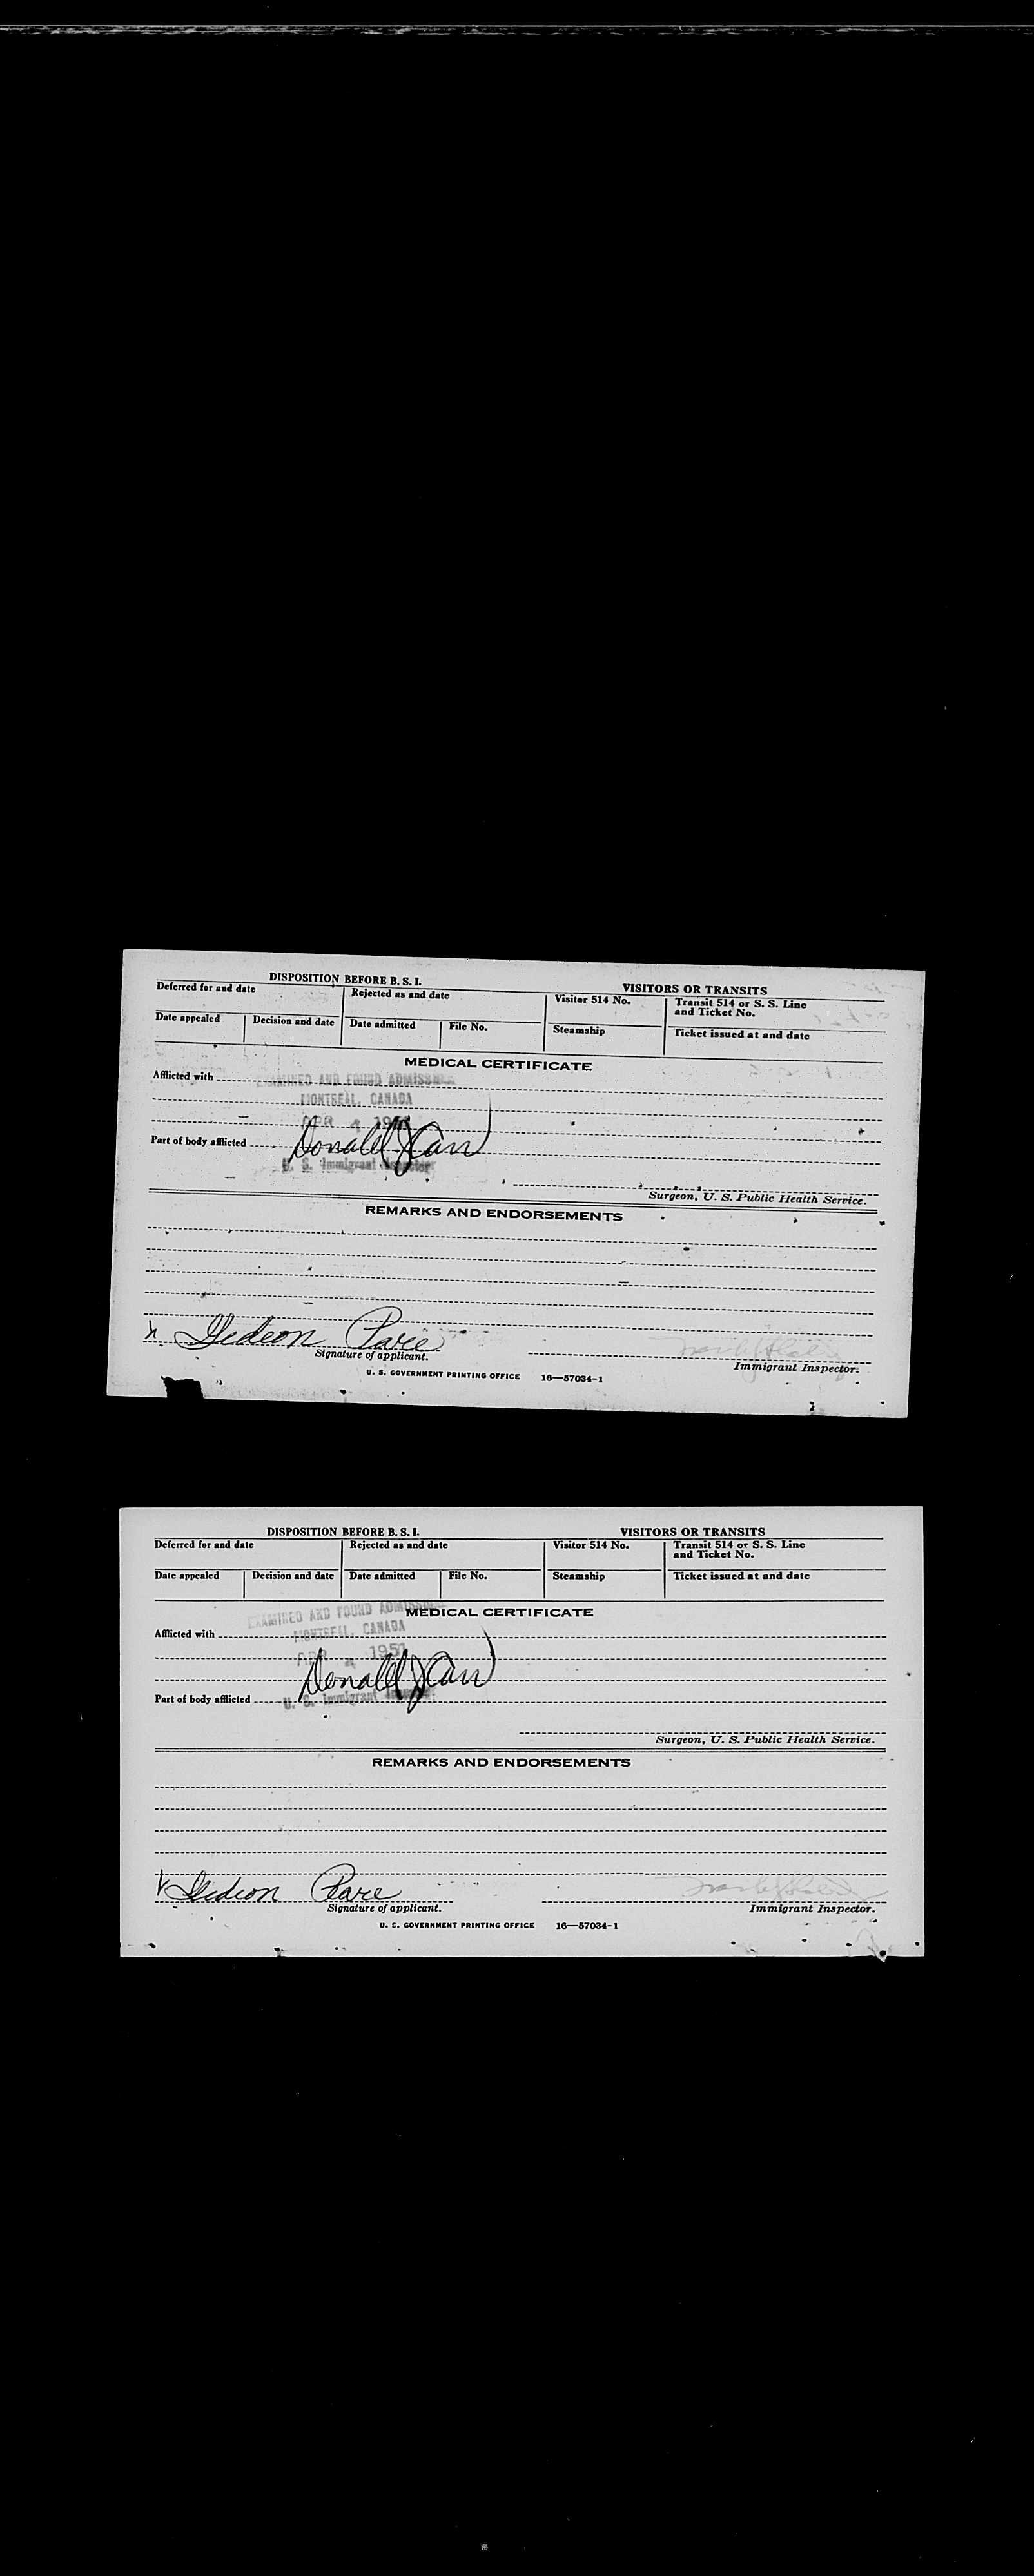 DISPOSITION BEFORE B. S. I. VISITORS OR TRANSITS
Deferred for and date Rejected as and date Visitor 514 No. Transit 514 or S. S. Line and Ticket No.
Date appealed Decision and date Date admitted File No. Steamship Ticket issued at and date
MEDICAL CERTIFICATE
Afflicted with
EXAMINED AND FOUND ADMISSIBLE
MONTREAL, CANADA
APR 4 195
Part of body afflicted Donald J Carr
U. S. Immigrant Inspector
Surgeon, U. S. Public Health Service.
REMARKS AND ENDORSEMENTS
x Gedeon Pare
Signature of applicant.
Immigrant Inspector.
U. S. GOVERNMENT PRINTING OFFICE 16—57034-1
DISPOSITION BEFORE B. S. I. VISITORS OR TRANSITS
Deferred for and date Rejected as and date Visitor 514 No. Transit 514 or S. S. Line and Ticket No.
Date appealed Decision and date Date admitted File No. Steamship Ticket issued at and date
EXAMINED AND FOUND ADMISSIBLE
MEDICAL CERTIFICATE
Afflicted with
MONTREAL, CANADA
APR 4 1951
Donald J Carr
Part of body afflicted
U. S. Immigrant Inspector
Surgeon, U. S. Public Health Service.
REMARKS AND ENDORSEMENTS
x Gedeon Pare
Signature of applicant.
Immigrant Inspector.
U. S. GOVERNMENT PRINTING OFFICE 16—57034-1